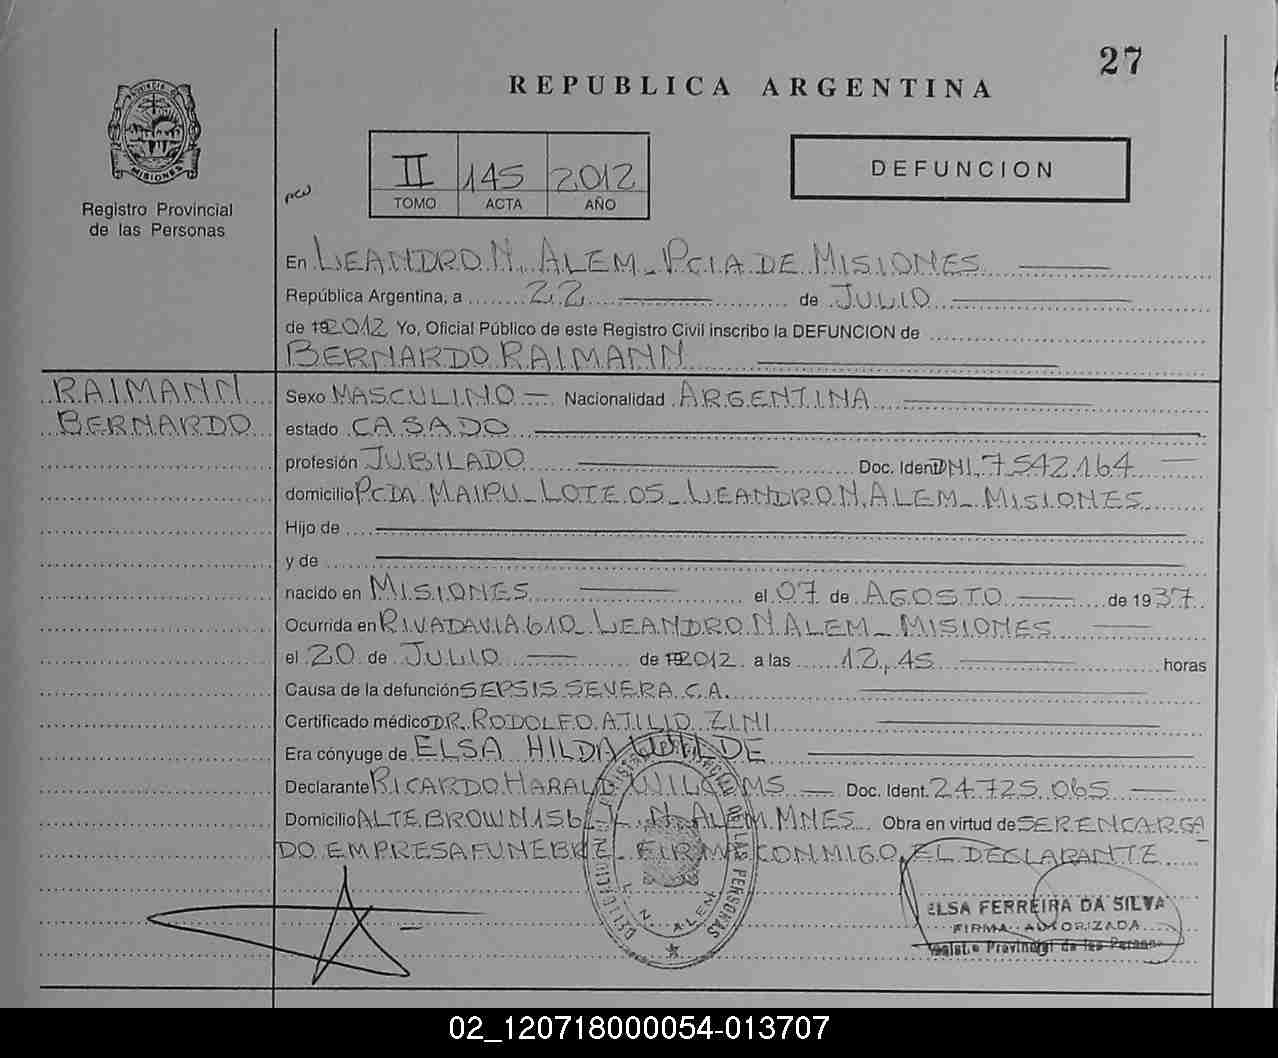 27
REPUBLICA ARGENTINA
PROVINCIA DE
MISIONES
Registro Provincial
de las Personas
II 145 2012
TOMO ACTA AÑO
DEFUNCION
En LEANDRO N. ALEM - PCIA DE MISIONES
República Argentina, a 22 de JULIO
de 2012 Yo, Oficial Público de este Registro Civil inscribo la DEFUNCION de
BERNARDO RAIMANN
RAIMANN
BERNARDO
Sexo MASCULINO Nacionalidad ARGENTINA
estado CASADO
profesión JUBILADO Doc. Ident. DNI. 7.542.164
domicilio PCDA. MAIPU - LOTE 05 - LEANDRO N. ALEM - MISIONES
Hijo de
y de
nacido en MISIONES el 07 de AGOSTO de 1937
Ocurrida en RIVADAVIA 610 - LEANDRO N. ALEM - MISIONES
el 20 de JULIO de 2012 a las 12,45 horas
Causa de la defunción SEPSIS SEVERA C.A.
Certificado médico DR. RODOLFO ATILIO ZINI
Era cónyuge de ELSA HILDA WILDE
Declarante RICARDO HARALD Doc. Ident. 24.725.065
Domicilio ALTE BROWN 156 - L. N. ALEM. MNES. Obra en virtud de SER ENCARGA
DO EMPRESA FUNEBRE - FIRMA CONMIGO, EL DECLARANTE
DE LAS PERSONAS
L. N. ALEM
ELSA FERREIRA DA SILVA
FIRMA AUTORIZADA
Provincial de las Personas
02_120718000054-013707